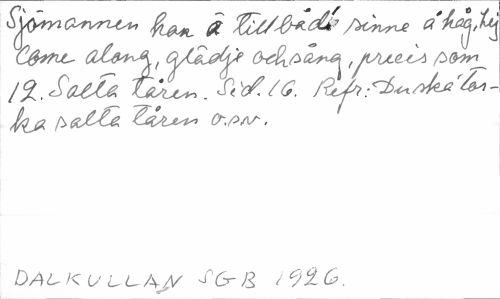 Sjömannen han ä till både sinne å håg, hej
Come along, glädje och sång, precis som
12. Salta tåren. Sid. 16. Refr: Du ska' tor-
ka salta tåren o.s.v.
DALKULLAN SGB 1926.